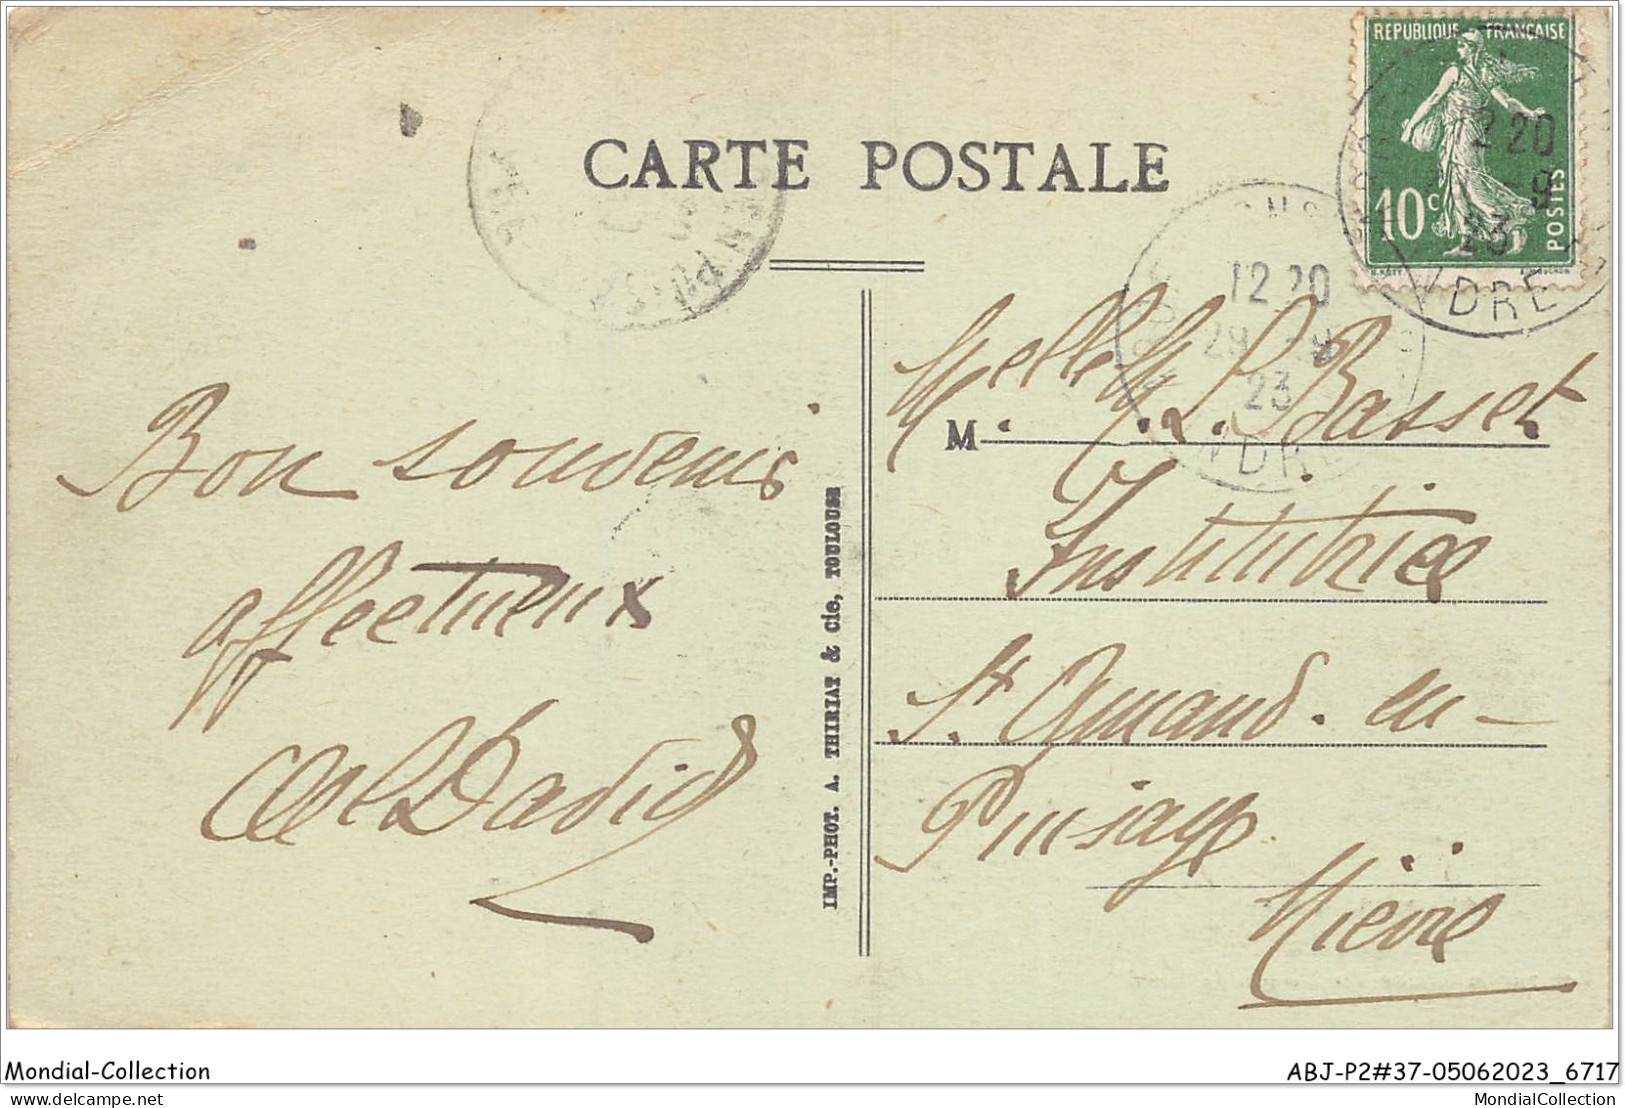 RÉPUBLIQUE FRANÇAISE
10c
POSTES
12 20
-9
23
CARTE POSTALE
12 20
29 -9
23
INDRE
Bon souvenir
affectueux
David
IMP.-PHOT. A. THIRIAT & Cie, TOULOUSE
M
Melle L. Basset
Institutrice
St Amand. en-
Puisaye
Nièvre
Mondial-Collection
ABJ-P2#37-05062023_6717
delcampe.net
MondialCollection